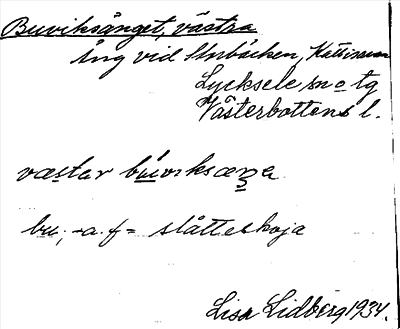 Buviksänget, västra
äng vid Storbäcken,
Lycksele sn o tg
Västerbottens l.
vastar bu̍vɩksæŋa
bu, -a. f = slåtterkoja
Lisa Lidberg 1934.